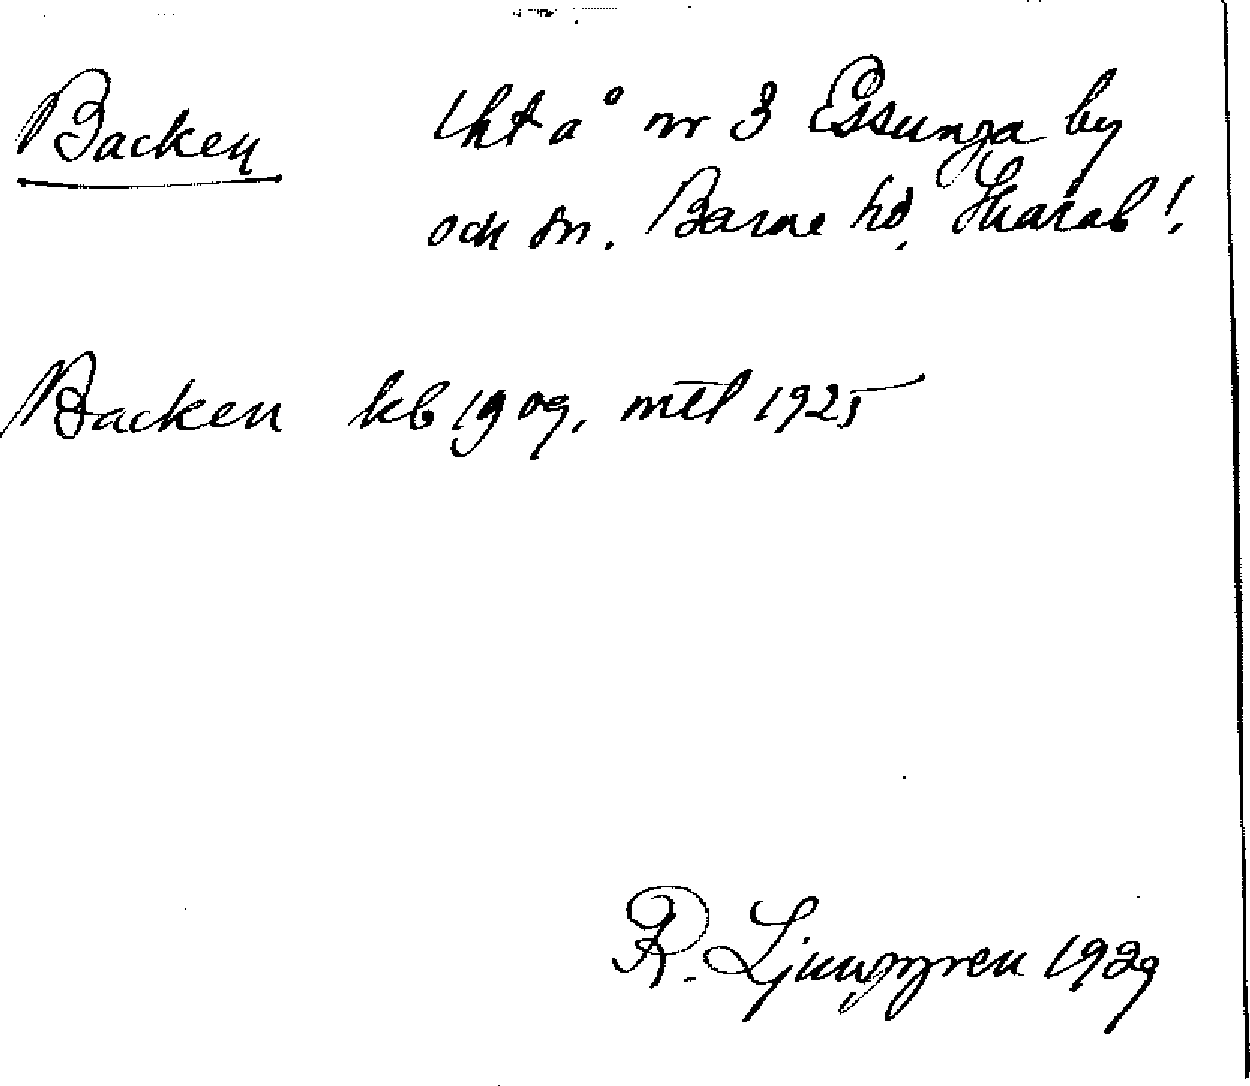 Backen lht å nr 3 Essunga by
och sn. Barne hd, Skarab!
Backen kb 1909, mtl 1925
R. Ljunggren 1929